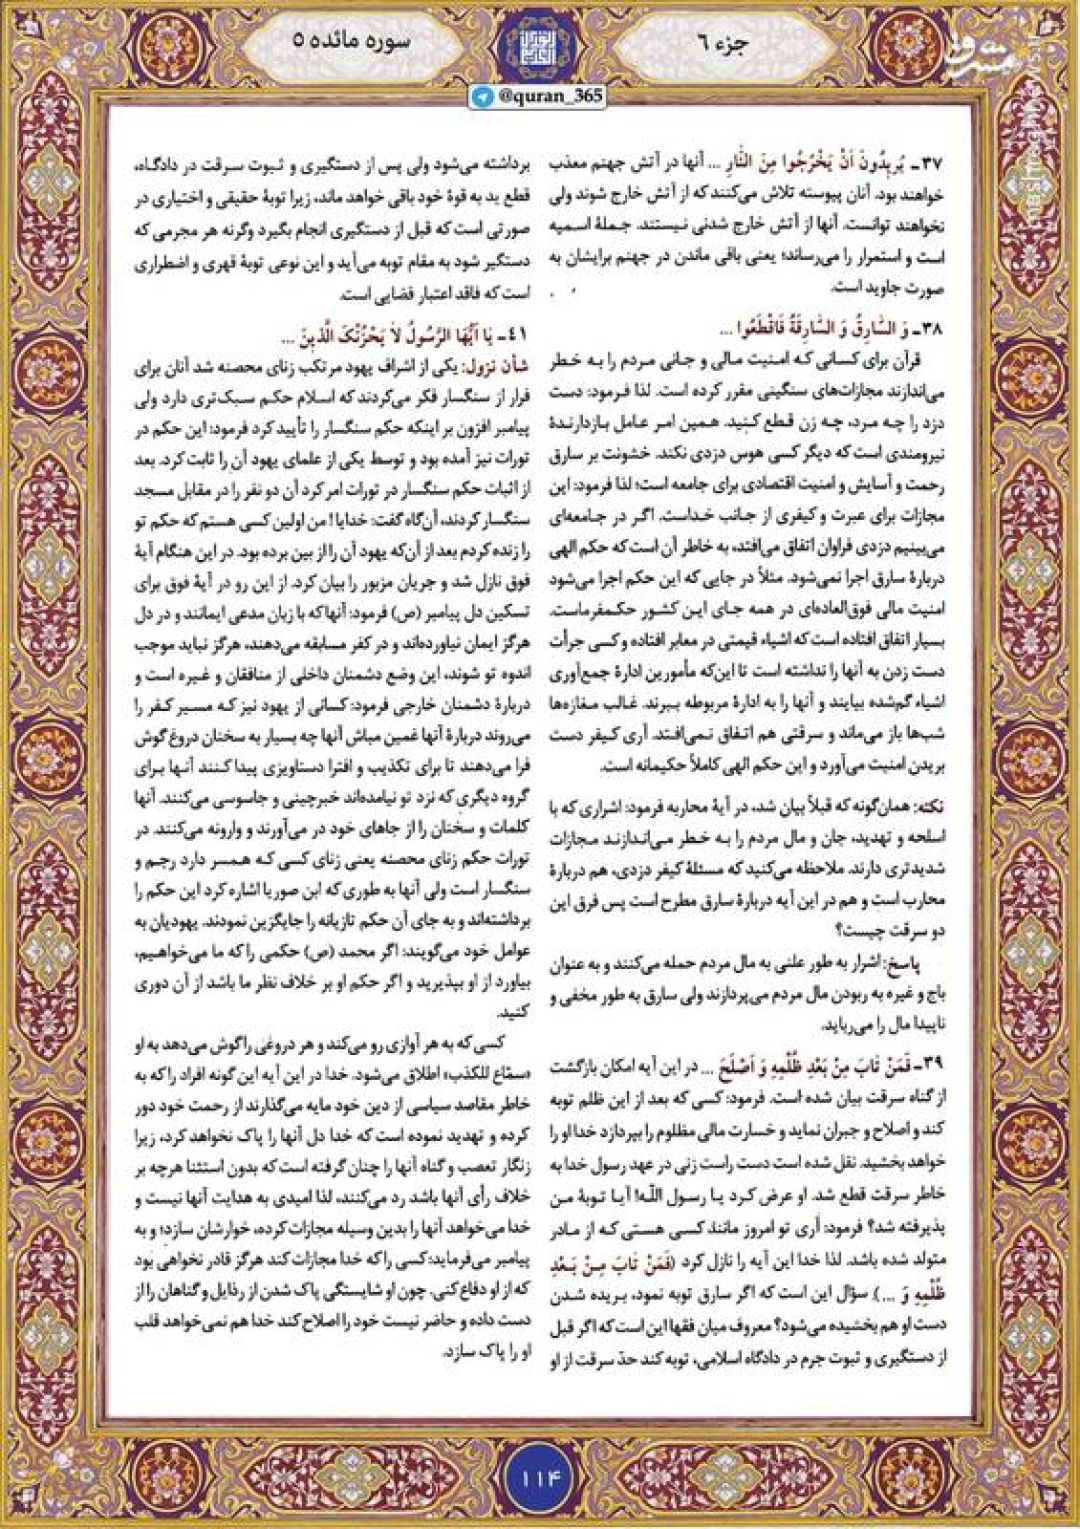 جزء ۶
سوره مائده ۵
@quran_365
۳۷ـ یُرِیدُونَ اَنْ یَخْرُجُوا مِنَ النَّارِ ... آنها در آتش جهنم معذب
خواهند بود. آنان پیوسته تلاش می‌کنند که از آتش خارج شوند ولی
نخواهند توانست. آنها از آتش خارج شدنی نیستند. جملهٔ اسمیه
است و استمرار را می‌رساند؛ یعنی باقی ماندن در جهنم برایشان به
صورت جاوید است.
۳۸ـ وَ السَّارِقُ وَ السَّارِقَةُ فَاقْطَعُوا ...
قرآن برای کسانی که امنیت مالی و جانی مردم را به خطر
می‌اندازند مجازات‌های سنگینی مقرر کرده است. لذا فرمود: دست
دزد را چه مرد، چه زن قطع کنید. همین امر عامل بازدارندهٔ
نیرومندی است که دیگر کسی هوس دزدی نکند. خشونت بر سارق
رحمت و آسایش و امنیت اقتصادی برای جامعه است؛ لذا فرمود: این
مجازات برای عبرت و کیفری از جانب خداست. اگر در جامعه‌ای
می‌بینیم دزدی فراوان اتفاق می‌افتد، به خاطر آن است که حکم الهی
دربارهٔ سارق اجرا نمی‌شود. مثلاً در جایی که این حکم اجرا می‌شود
امنیت مالی فوق‌العاده‌ای در همه جای این کشور حکمفرماست.
بسیار اتفاق افتاده است که اشیاء قیمتی در معابر افتاده و کسی جرأت
دست زدن به آنها را نداشته است تا این‌که مأمورین ادارهٔ جمع‌آوری
اشیاء گم‌شده بیایند و آنها را به ادارهٔ مربوطه ببرند. غالب مغازه‌ها
شب‌ها باز می‌ماند و سرقتی هم اتفاق نمی‌افتد. آری کیفر دست
بریدن امنیت می‌آورد و این حکم الهی کاملاً حکیمانه است.
نکته: همان‌گونه که قبلاً بیان شد، در آیهٔ محاربه فرمود: اشراری که با
اسلحه و تهدید، جان و مال مردم را به خطر می‌اندازند مجازات
شدیدتری دارند. ملاحظه می‌کنید که مسئلهٔ کیفر دزدی، هم دربارهٔ
محارب است و هم در این آیه دربارهٔ سارق مطرح است پس فرق این
دو سرقت چیست؟
پاسخ: اشرار به طور علنی به مال مردم حمله می‌کنند و به عنوان
باج و غیره به ربودن مال مردم می‌پردازند ولی سارق به طور مخفی و
ناپیدا مال را می‌رباید.
۳۹ـ فَمَنْ تَابَ مِنْ بَعْدِ ظُلْمِهِ وَ اَصْلَحَ ... در این آیه امکان بازگشت
از گناه سرقت بیان شده است. فرمود: کسی که بعد از این ظلم توبه
کند و اصلاح و جبران نماید و خسارت مالی مظلوم را بپردازد خدا او را
خواهد بخشید. نقل شده است دست راست زنی در عهد رسول خدا به
خاطر سرقت قطع شد. او عرض کرد یا رسول الله! آیا توبهٔ من
پذیرفته شد؟ فرمود: آری تو امروز مانند کسی هستی که از مادر
متولد شده باشد. لذا خدا این آیه را نازل کرد (فَمَنْ تَابَ مِنْ بَعْدِ
ظُلْمِهِ وَ ...) سؤال این است که اگر سارق توبه نمود، بریده شدن
دست او هم بخشیده می‌شود؟ معروف میان فقها این است که اگر قبل
از دستگیری و ثبوت جرم در دادگاه اسلامی، توبه کند حدّ سرقت از او
برداشته می‌شود ولی پس از دستگیری و ثبوت سرقت در دادگاه،
قطع ید به قوهٔ خود باقی خواهد ماند، زیرا توبهٔ حقیقی و اختیاری در
صورتی است که قبل از دستگیری انجام بگیرد وگرنه هر مجرمی که
دستگیر شود به مقام توبه می‌آید و این نوعی توبهٔ قهری و اضطراری
است که فاقد اعتبار قضایی است.
۴۱ـ یَا اَیُّهَا الرَّسُولُ لاَ یَحْزُنْکَ الَّذِینَ ...
شأن نزول: یکی از اشراف یهود مرتکب زنای محصنه شد آنان برای
فرار از سنگسار فکر می‌کردند که اسلام حکم سبک‌تری دارد ولی
پیامبر افزون بر اینکه حکم سنگسار را تأیید کرد فرمود: این حکم در
تورات نیز آمده بود و توسط یکی از علمای یهود آن را ثابت کرد. بعد
از اثبات حکم سنگسار در تورات امر کرد آن دو نفر را در مقابل مسجد
سنگسار کردند، آن‌گاه گفت: خدایا! من اولین کسی هستم که حکم تو
را زنده کردم بعد از آن‌که یهود آن را از بین برده بود. در این هنگام آیهٔ
فوق نازل شد و جریان مزبور را بیان کرد. از این رو در آیهٔ فوق برای
تسکین دل پیامبر (ص) فرمود: آنها که با زبان مدعی ایمانند و در دل
هرگز ایمان نیاورده‌اند و در کفر مسابقه می‌دهند، هرگز نباید موجب
اندوه تو شوند، این وضع دشمنان داخلی از منافقان و غیره است و
دربارهٔ دشمنان خارجی فرمود: کسانی از یهود نیز که مسیر کفر را
می‌روند دربارهٔ آنها غمین مباش آنها چه بسیار به سخنان دروغ گوش
فرا می‌دهند تا برای تکذیب و افترا دستاویزی پیدا کنند آنها برای
گروه دیگری که نزد تو نیامده‌اند خبرچینی و جاسوسی می‌کنند. آنها
کلمات و سخنان را از جاهای خود در می‌آورند و وارونه می‌کنند. در
تورات حکم زنای محصنه یعنی زنای کسی که همسر دارد رجم و
سنگسار است ولی آنها به طوری که ابن صوریا اشاره کرد این حکم را
برداشته‌اند و به جای آن حکم تازیانه را جایگزین نمودند. یهودیان به
عوامل خود می‌گویند: اگر محمد (ص) حکمی را که ما می‌خواهیم،
بیاورد از او بپذیرید و اگر حکم او بر خلاف نظر ما باشد از آن دوری
کنید.
کسی که به هر آوازی رو می‌کند و هر دروغی را گوش می‌دهد به او
«سمّاع للکذب» اطلاق می‌شود. خدا در این آیه این گونه افراد را که به
خاطر مقاصد سیاسی از دین خود مایه می‌گذارند از رحمت خود دور
کرده و تهدید نموده است که خدا دل آنها را پاک نخواهد کرد، زیرا
زنگار تعصب و گناه آنها را چنان گرفته است که بدون استثنا هرچه بر
خلاف رأی آنها باشد رد می‌کنند، لذا امیدی به هدایت آنها نیست و
خدا می‌خواهد آنها را بدین وسیله مجازات کرده، خوارشان سازد؛ و به
پیامبر می‌فرماید: کسی را که خدا مجازات کند هرگز قادر نخواهی بود
که از او دفاع کنی. چون او شایستگی پاک شدن از رذایل و گناهان را از
دست داده و حاضر نیست خود را اصلاح کند خدا هم نمی‌خواهد قلب
او را پاک سازد.
۱۱۴